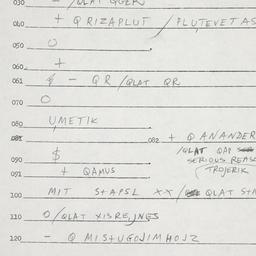 030 /QLAT QGER
040 + Q RIZAPLUT / PLUTEVETAS
050 O
060 +
061 $ - QR /QLAT QR
070 O
080 UMETIK
081 082 + Q ANANDER
/QLAT QAP
090 $ SERIOUS REAS
091 + QAMUS ( TROJERIK
100 MIT S+APSL XX / QLAT S+A
110 O /QLAT XISREJNGS
120 - Q MIS+UGOJIMHOJZ